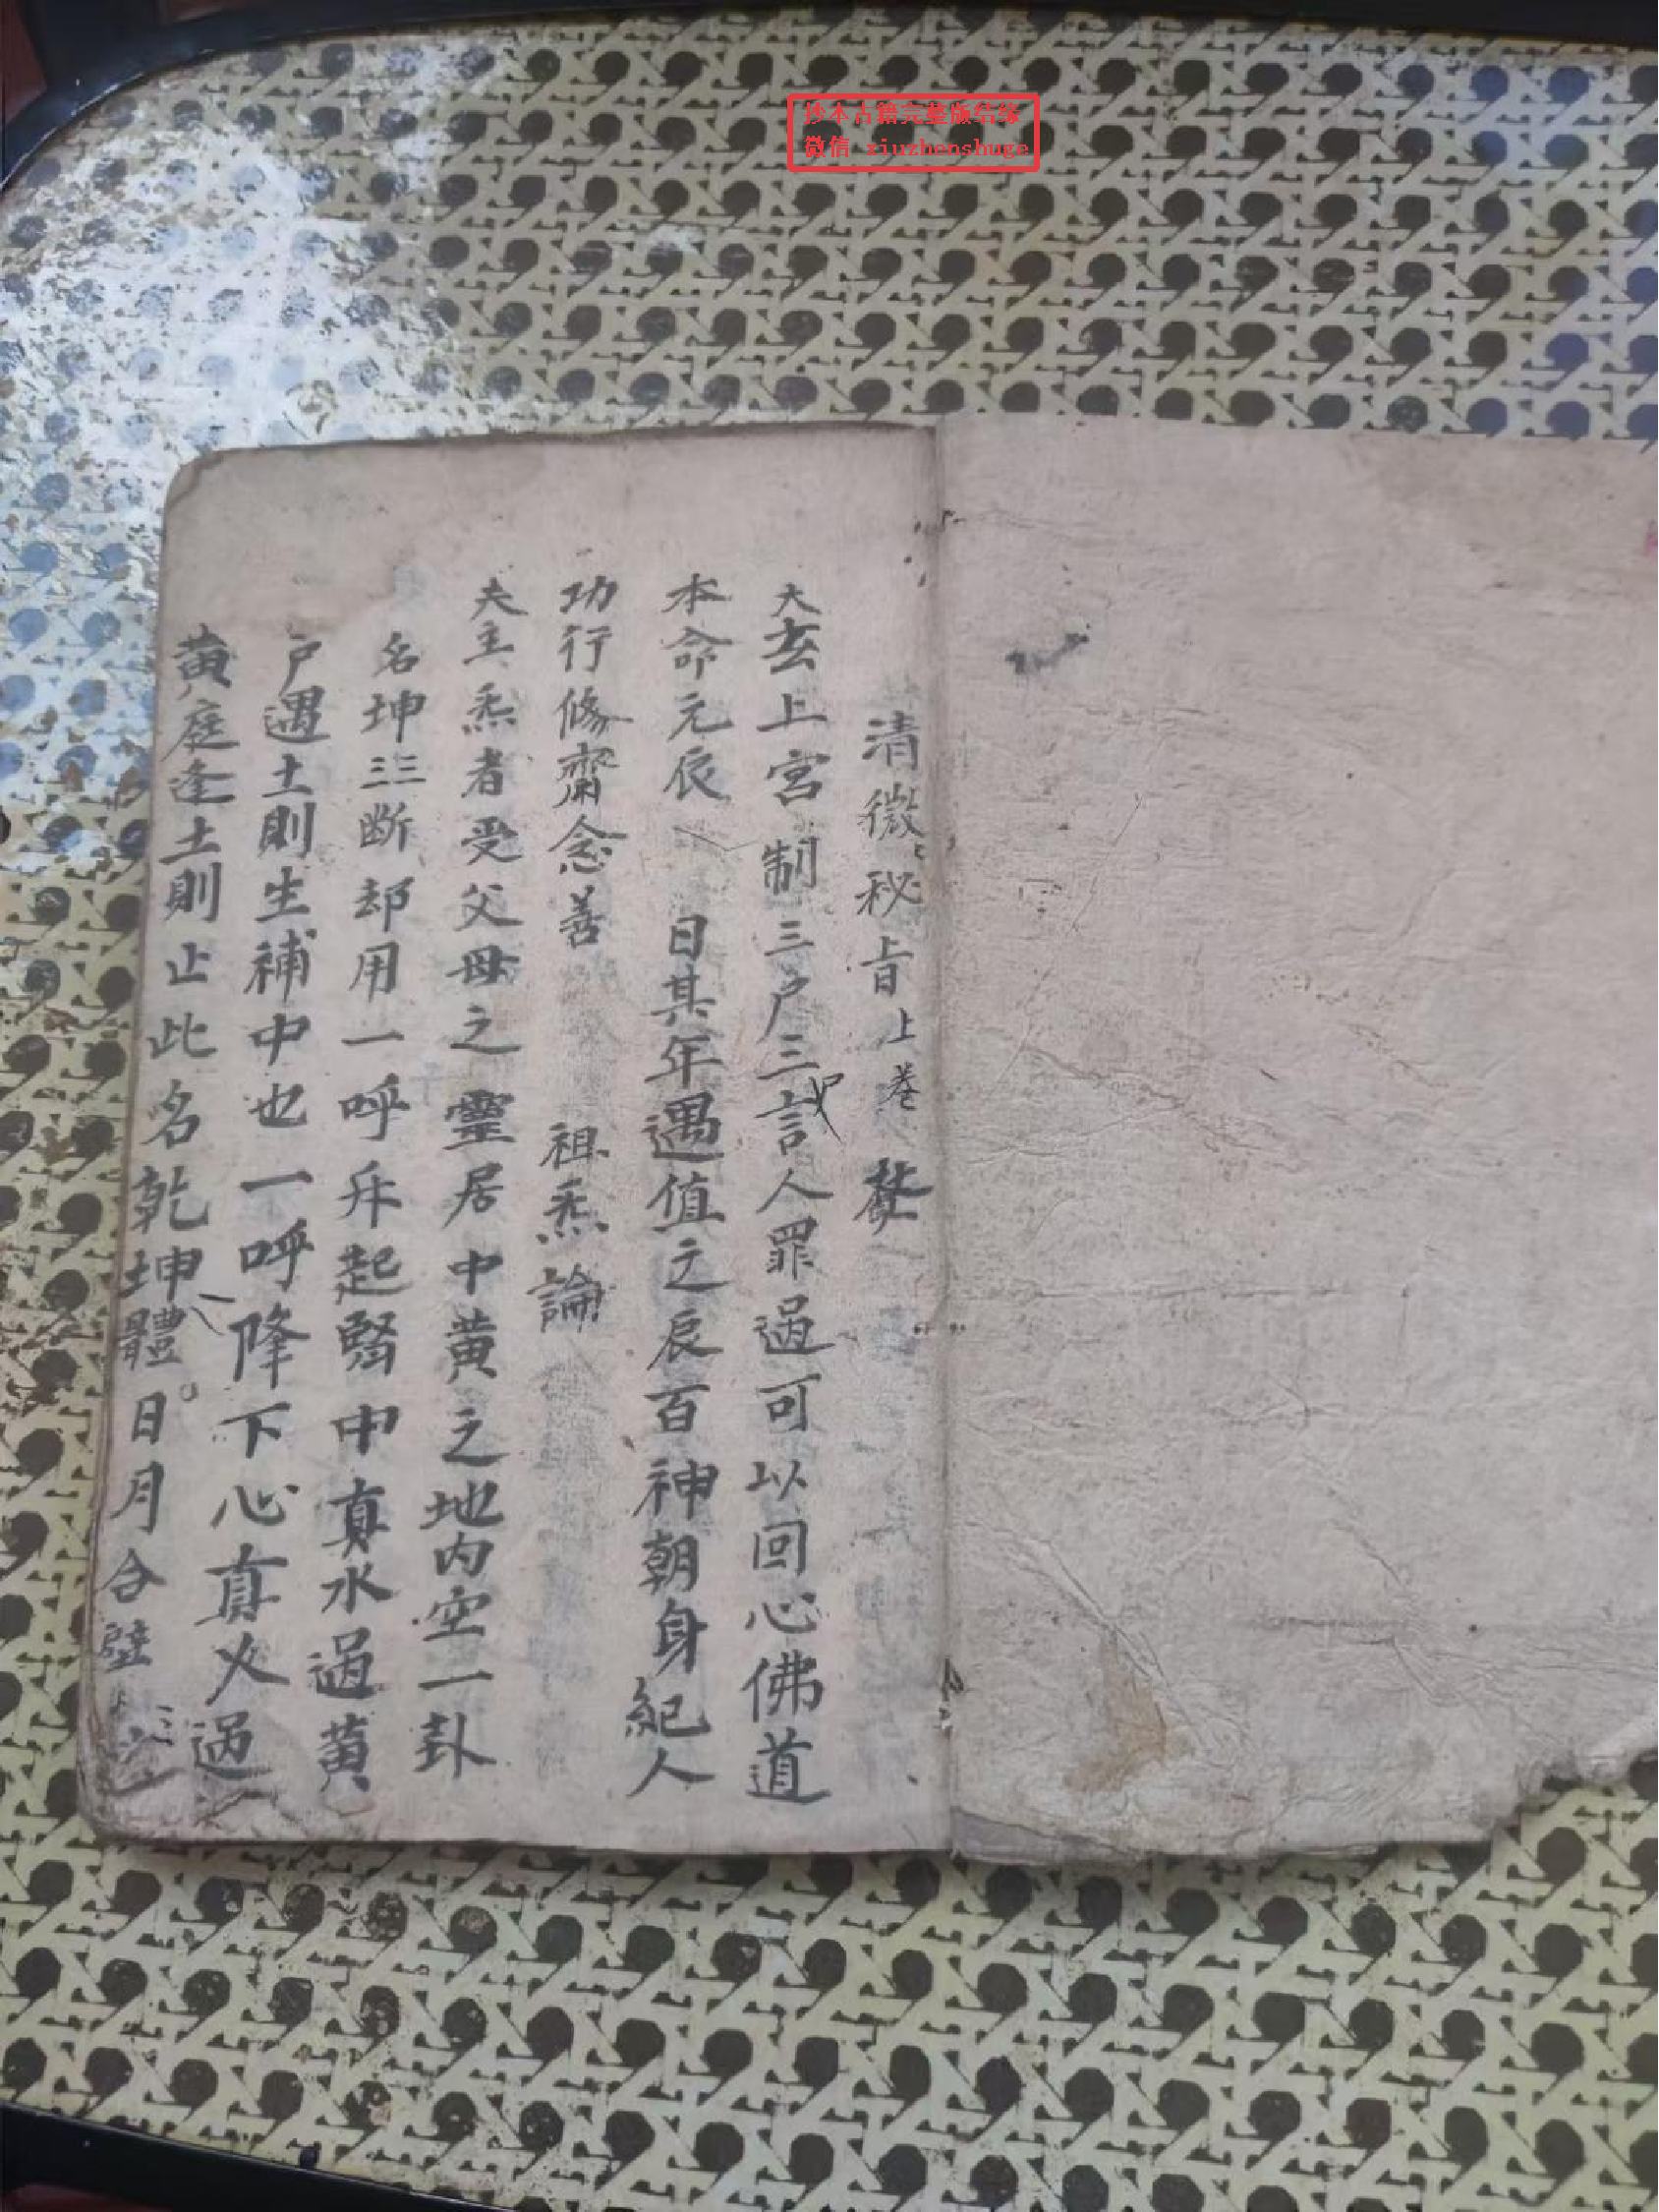 抄本古籍完整版结缘
微信 xiuzhenshuge
清微秘旨上卷
大玄上宫制三尸三言人罪過可以回心佛道
本命元辰 日某年遇值之辰百神朝身紀人
功行修齋念善 祖炁論
夫主炁者受父母之靈居中黄之地内空一卦
名坤☷断却用一呼升起腎中真水過黄
户遇土則生補中也一呼降下心真火過
黄庭逢土則止此名乾坤體日月合璧